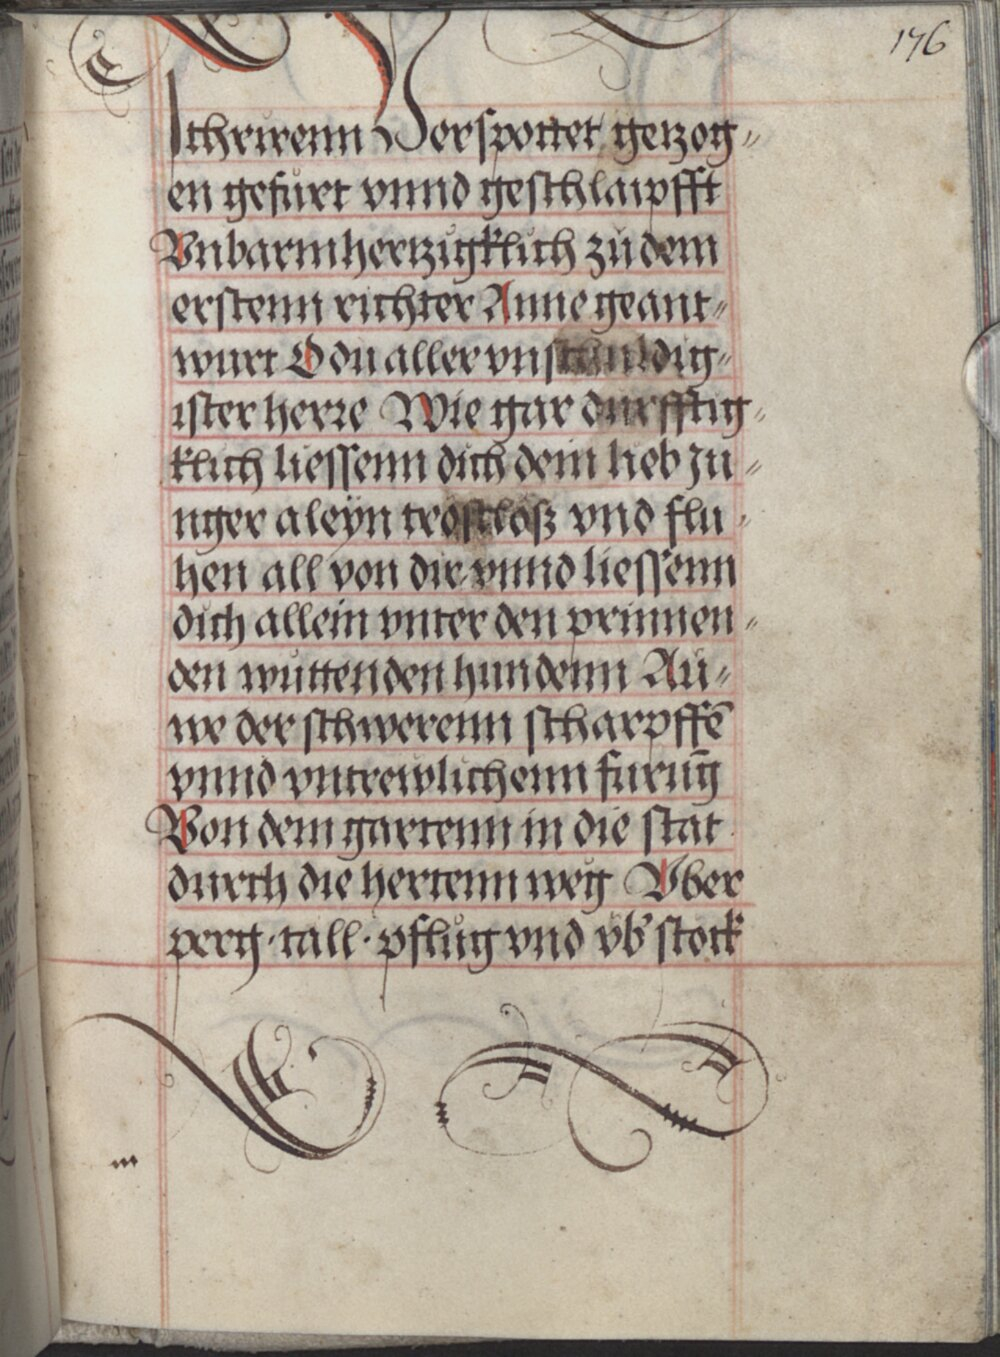 176
schrirenn Verspottet getzog〃
en gefürt vnnd geschlaipfft
Vnbarmhertzigklich zů dem
erstenn richter Anne geant〃
wurt O du aller vnschuldig〃
ister herre Wie gar durfftig〃
klich liessenn dich dein lieb Ju〃
nger aleyn trostloß vnd flu〃
hen all von dir vnnd liessenn
dich allein vnter den prinnen〃
den wüttenden hundenn Au〃
we der schwerenn scharpffē
vnnd vntrewlichenn furūg
Von dem gartenn in die stat
durch die hertenn weg Vber
perg · tall · pflůg vnd vb' stock